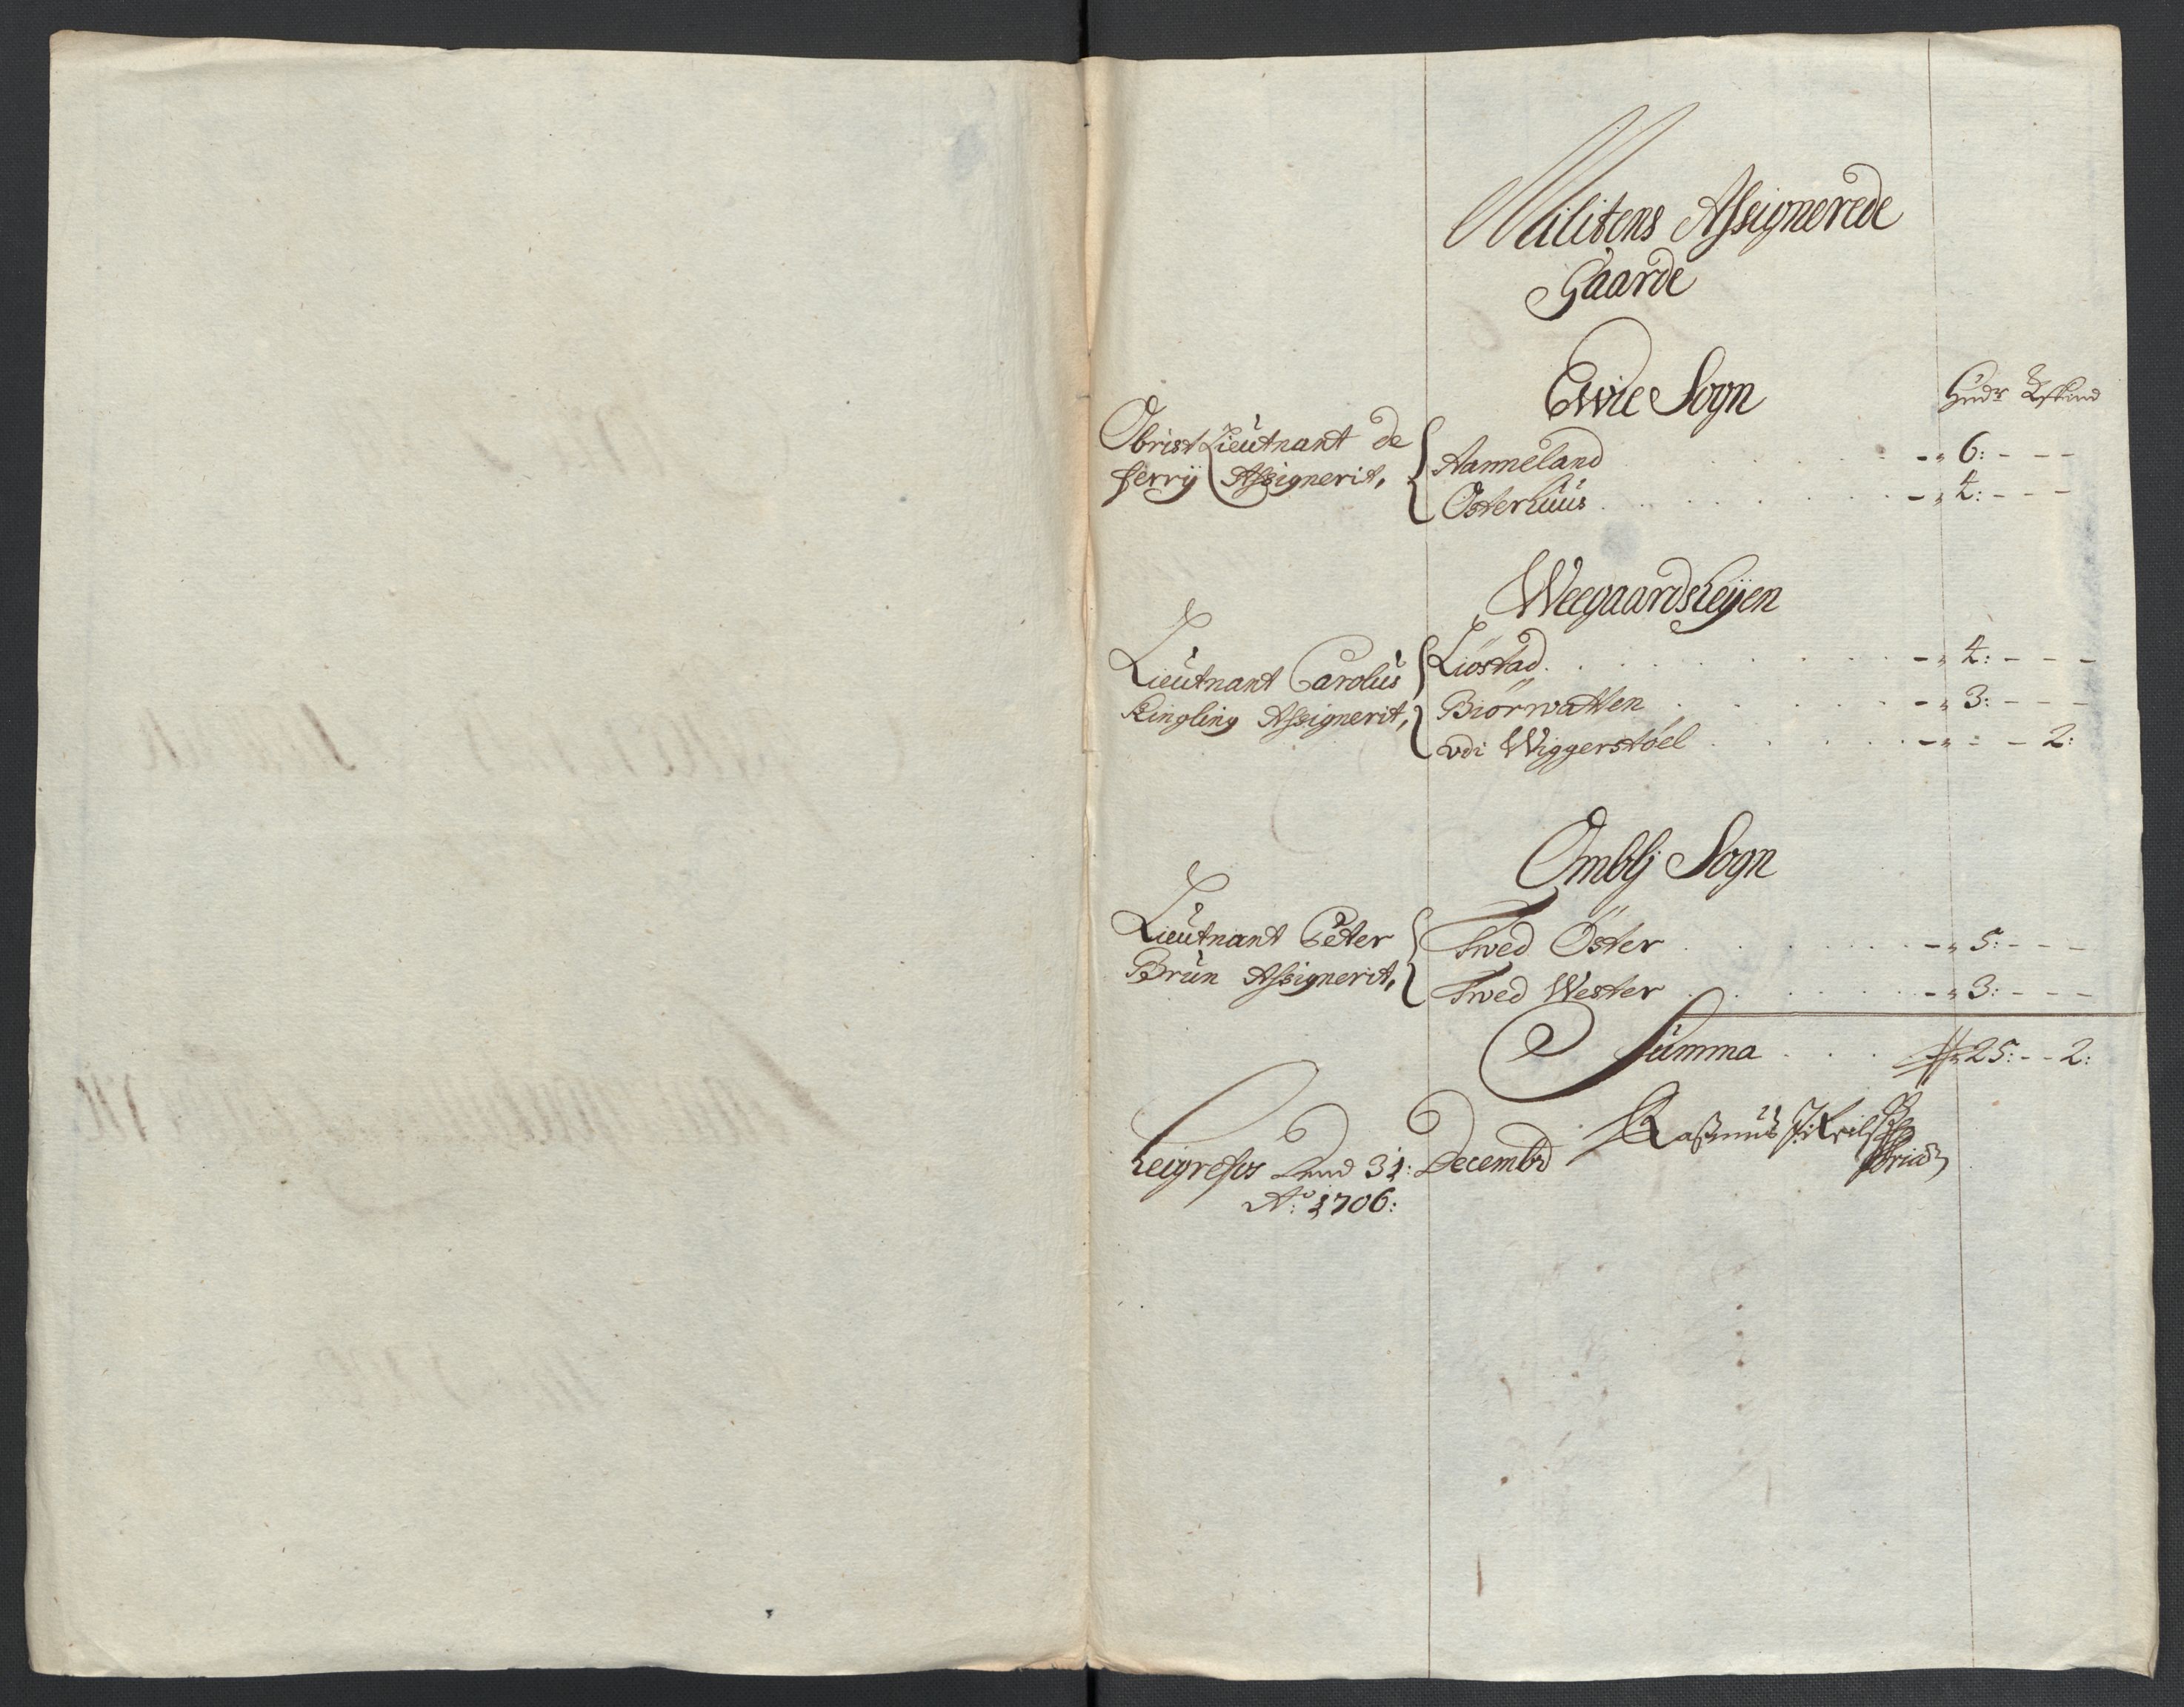 Militens Assignerede
Gaarde
Ewie Sogn
Hudr
Obrist Lieutnant de
ferry Assignerit,
Aanneland - " 6: - - -
Osterhuus - " 4: - - -
Weegaardsheyen
Lieutnant Carolus
Kingling Assignerit,
Liöstad - " 4: - - -
Biörwatten - " 3: - - -
vdi Wiggerstöel - " - - 2:
Ombli Sogn
Lieutnant Peter
Brun Assignerit,
Twed Öster - " 5: - - -
Twed Wester - " 3: - - -
Summa 25: - - 2:
heigrefos 31: Decembr
Ao: 1706:
Rasmus